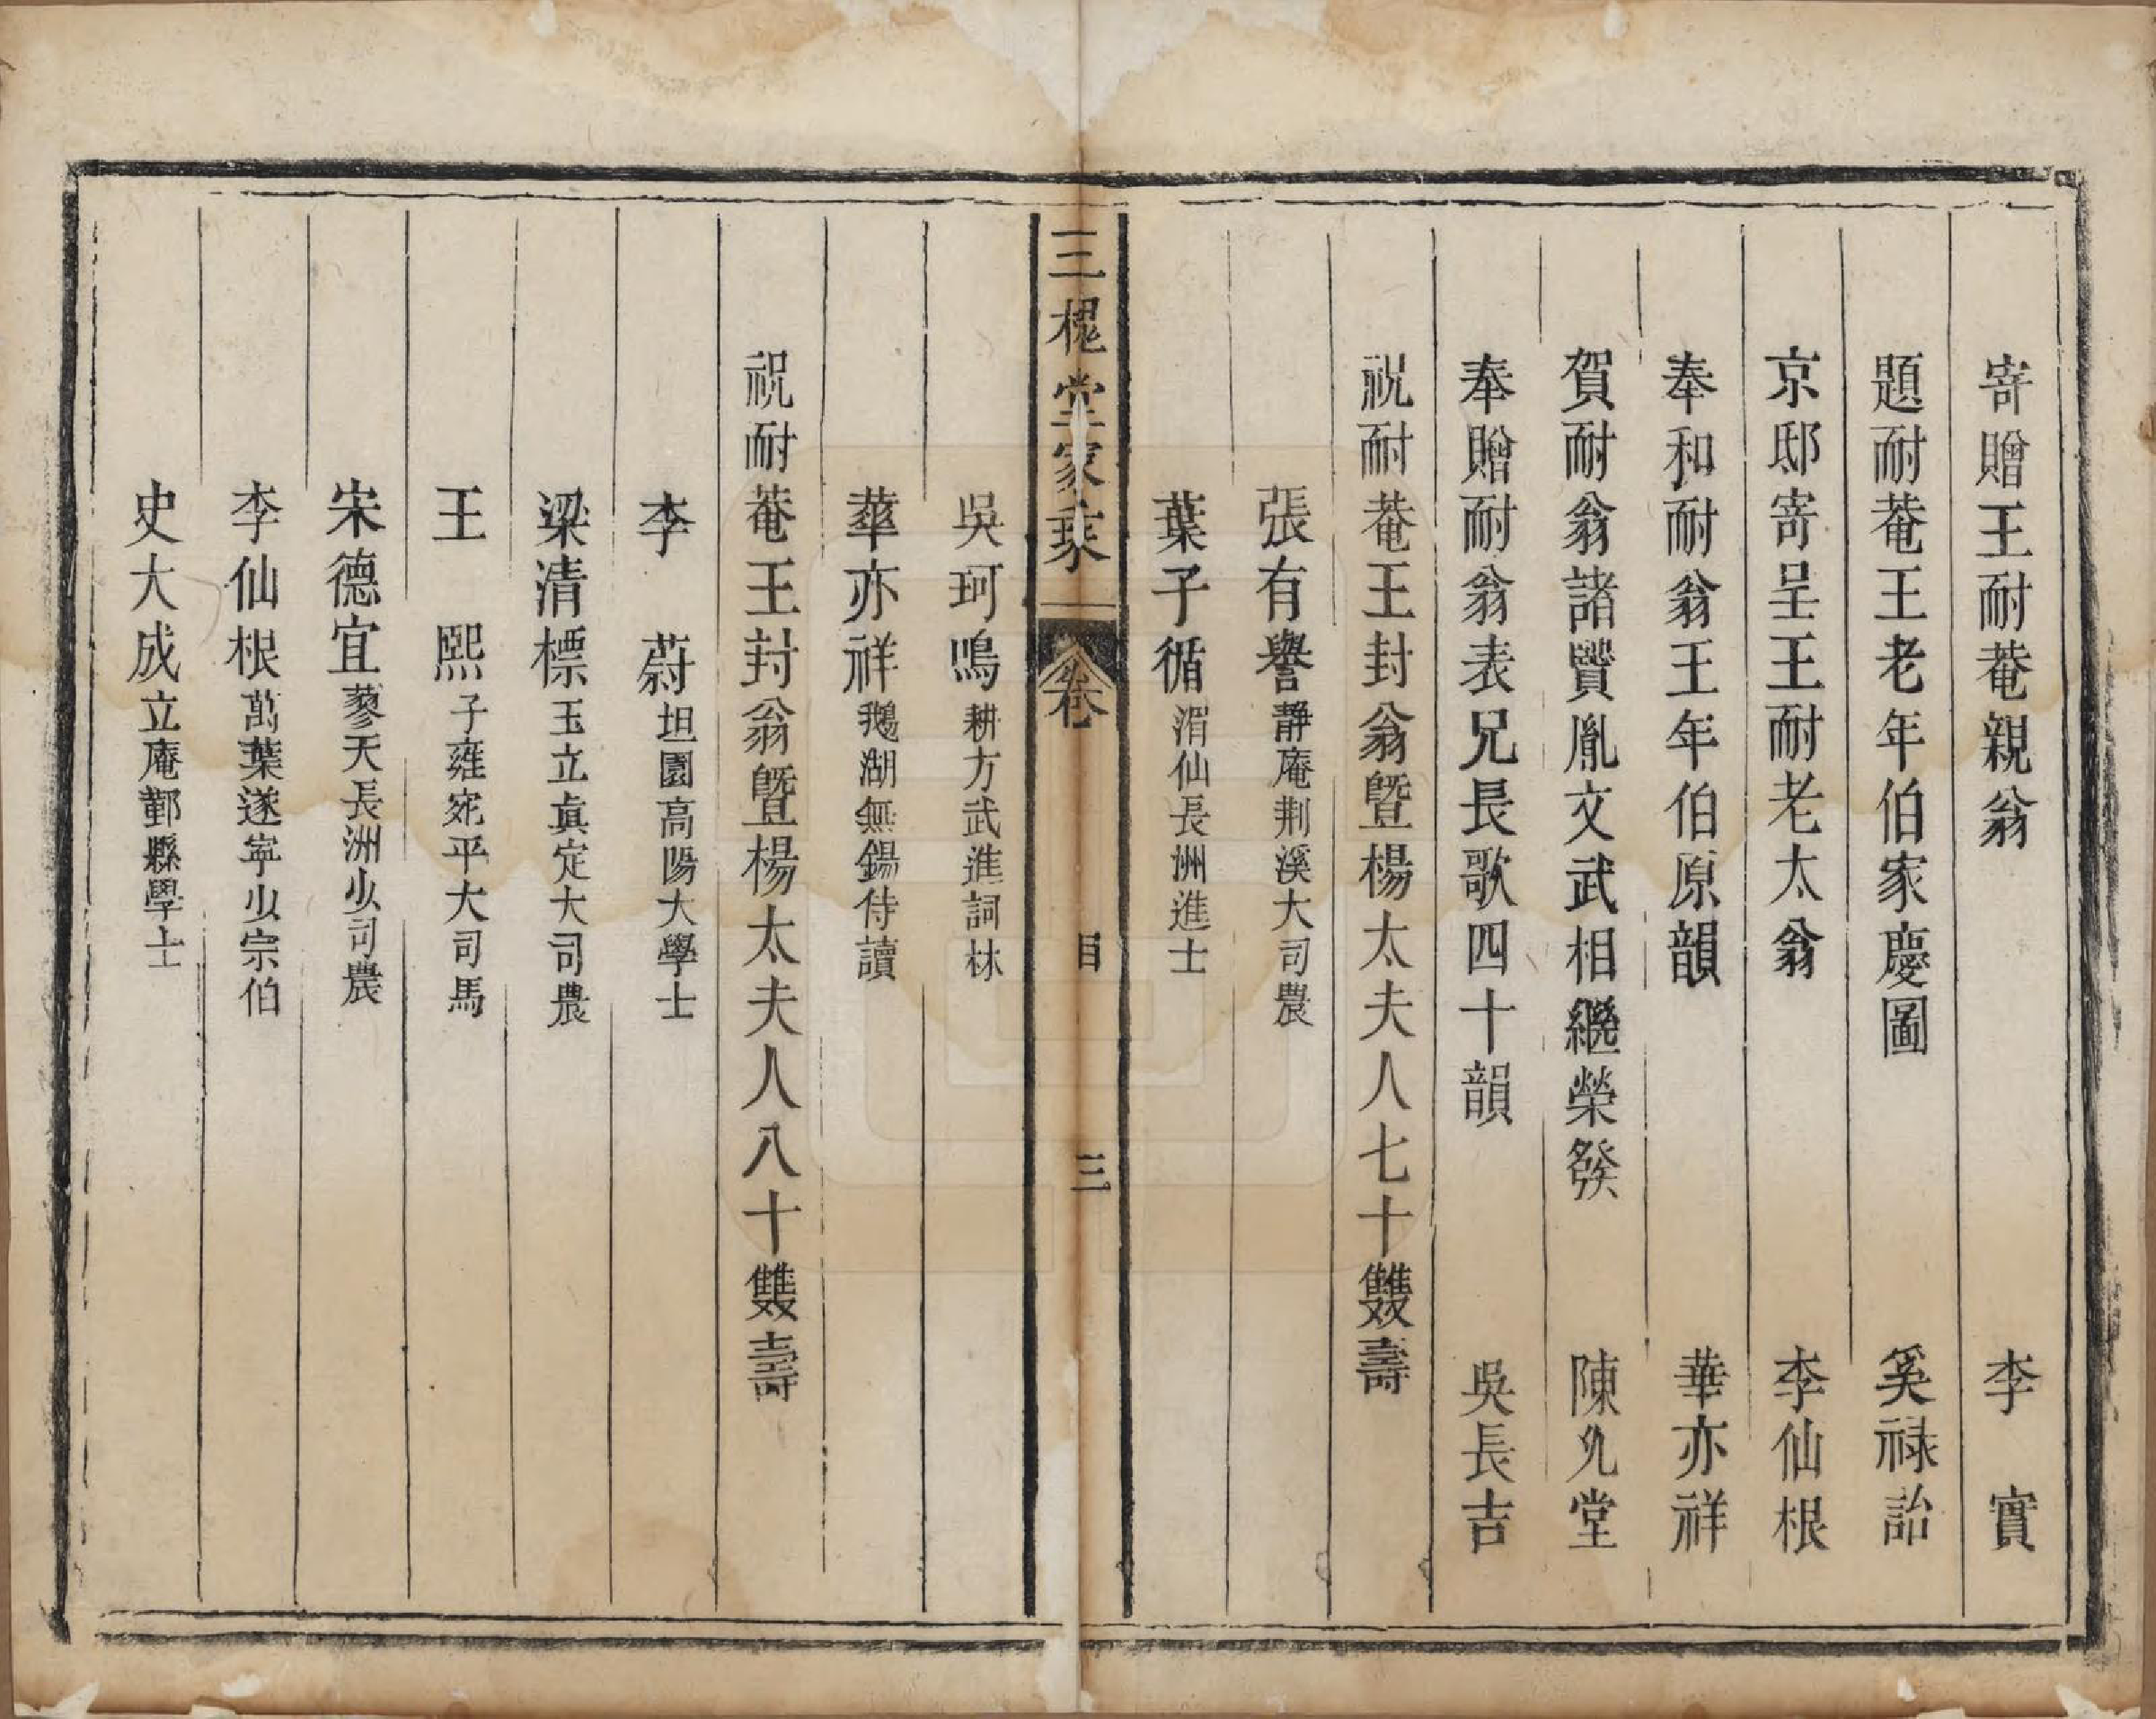 寄贈王耐菴親翁 李 實
題耐菴王老年伯家慶圖 奚祿詒
京邸寄呈王耐老太翁 李仙根
奉和耐翁王年伯原韻 華亦祥
賀耐翁諸賢胤文武相繼榮發 陳允堂
奉贈耐翁表兄長歌四十韻 吳長吉
祝耐菴王封翁暨楊太夫人七十雙壽
張有譽靜庵荆溪大司農
葉子循湄仙長洲進士
三槐堂家乘 卷 目 三
吳珂鳴耕方武進詞林
華亦祥鵝湖無錫侍讀
祝耐菴王封翁暨楊太夫人八十雙壽
李 蔚坦園高陽大學士
梁清標玉立眞定大司農
王 熙子雍宛平大司馬
宋德宜蓼天長洲少司農
李仙根萬葉遂寧少宗伯
史大成立庵鄞縣學士